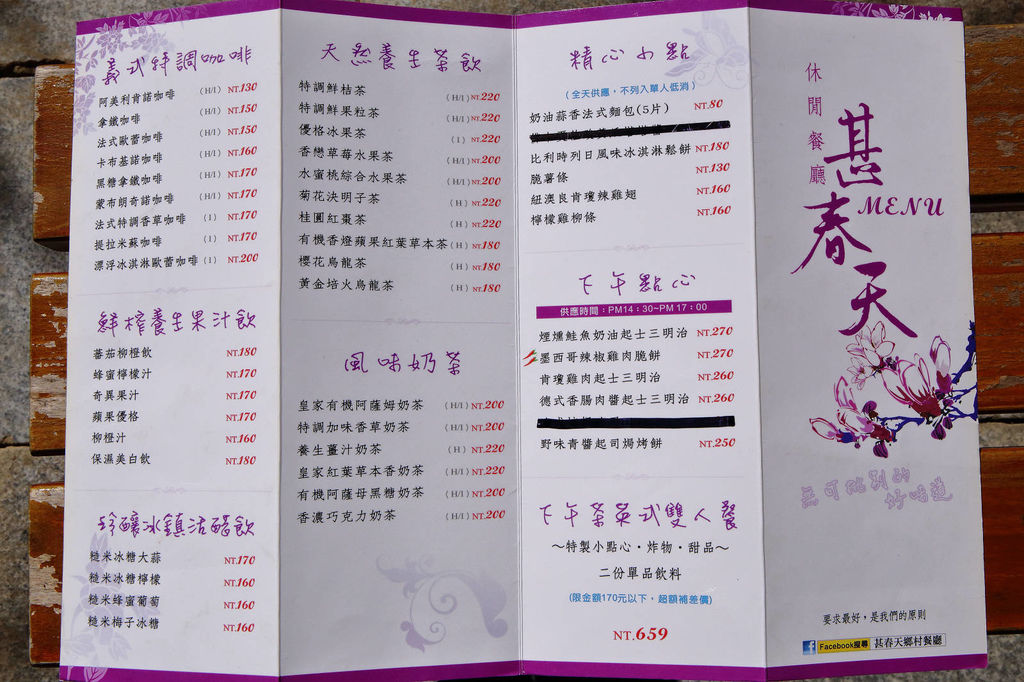 義式特調咖啡
阿美利肯諾咖啡 (H/I) NT.130
拿鐵咖啡 (H/I) NT.150
法式歐蕾咖啡 (H/I) NT.150
卡布基諾咖啡 (H/I) NT.160
黑糖拿鐵咖啡 (H/I) NT.170
蒙布朗奇諾咖啡 (H/I) NT.170
法式特調香草咖啡 (I) NT.170
提拉米蘇咖啡 (I) NT.170
漂浮冰淇淋歐蕾咖啡 (I) NT.200
鮮榨養生果汁飲
蕃茄柳橙飲 NT.180
蜂蜜檸檬汁 NT.170
奇異果汁 NT.170
蘋果優格 NT.170
柳橙汁 NT.160
保濕美白飲 NT.180
珍釀冰鎮活醋飲
糙米冰糖大蒜 NT.170
糙米冰糖檸檬 NT.160
糙米蜂蜜葡萄 NT.160
糙米梅子冰糖 NT.160
天然養生茶飲
特調鮮桔茶 (H/I) NT.220
特調鮮果粒茶 (H/I) NT.220
優格冰果茶 (I) NT.220
香戀草莓水果茶 (H/I) NT.200
水蜜桃綜合水果茶 (H/I) NT.200
菊花決明子茶 (H) NT.220
桂圓紅棗茶 (H) NT.220
有機香橙蘋果紅葉草本茶 (H) NT.180
櫻花烏龍茶 (H) NT.180
黃金培火烏龍茶 (H) NT.180
風味奶茶
皇家有機阿薩姆奶茶 (H/I) NT.200
特調加味香草奶茶 (H/I) NT.200
養生薑汁奶茶 (H) NT.220
皇家紅葉草本香奶茶 (H/I) NT.220
有機阿薩母黑糖奶茶 (H/I) NT.200
香濃巧克力奶茶 (H/I) NT.200
精心小點
(全天供應，不列入單人低消)
奶油蒜香法式麵包(5片) NT.80
比利時列日風味冰淇淋鬆餅 NT.180
脆薯條 NT.130
紐澳良肯瓊辣雞翅 NT.160
檸檬雞柳條 NT.160
下午點心
供應時間：PM14：30~PM 17：00
煙燻鮭魚奶油起士三明治 NT.270
墨西哥辣椒雞肉脆餅 NT.270
肯瓊雞肉起士三明治 NT.260
德式香腸肉醬起士三明治 NT.260
野味青醬起司焗烤餅 NT.250
下午茶英式雙人餐
～特製小點心・炸物・甜品～
二份單品飲料
(限金額170元以下，超額補差價)
NT.659
休閒餐廳
甚春天
MENU
無可挑剔的
好味道
要求最好，是我們的原則
f Facebook搜尋 甚春天鄉村餐廳